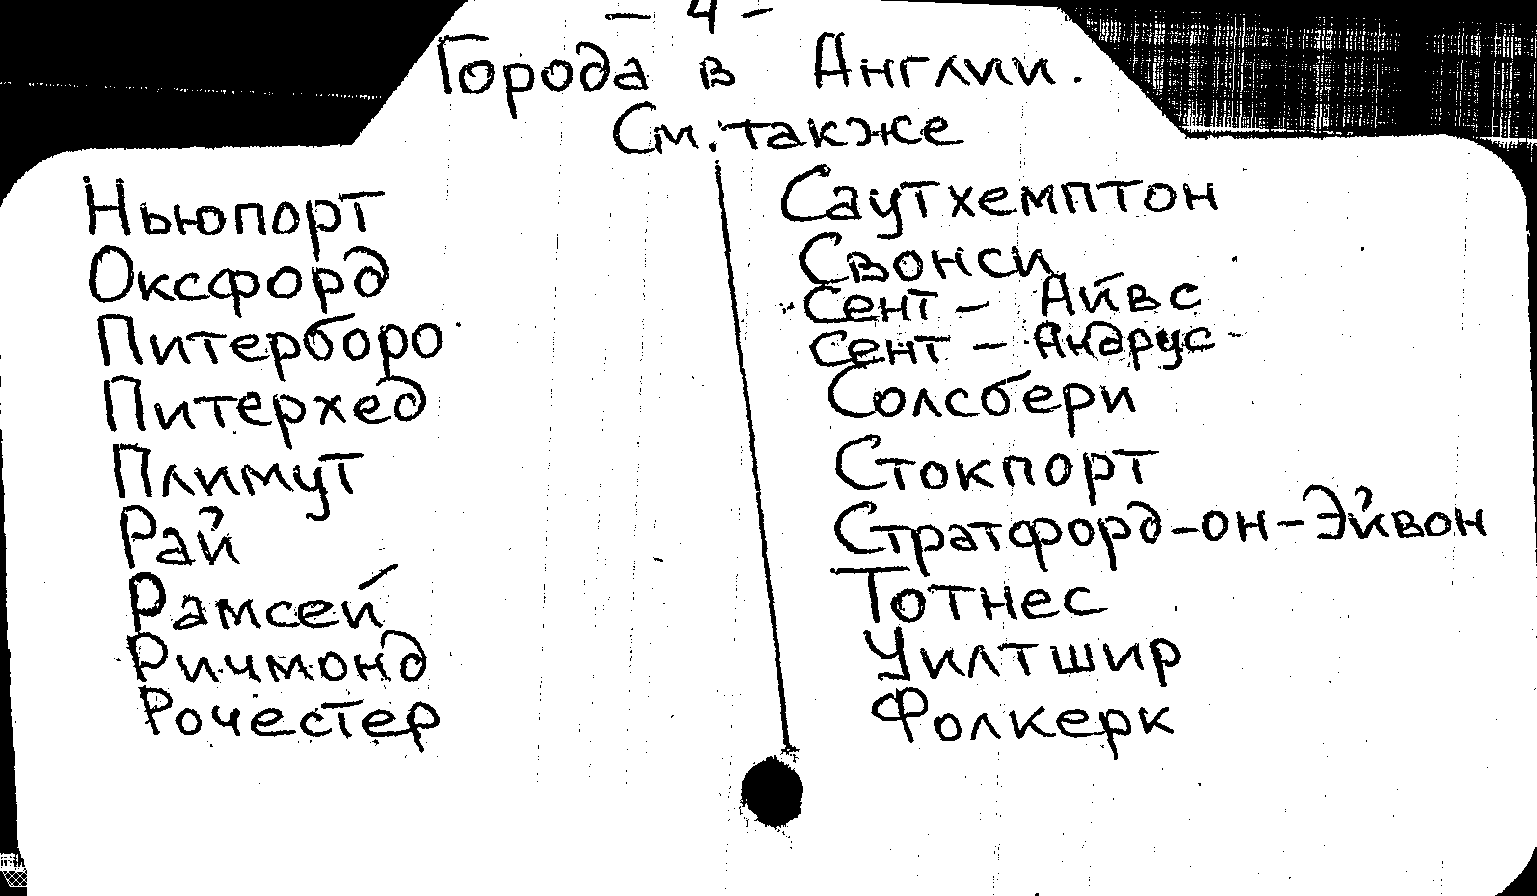 - 4 -
Города в Англии.
См. также
Ньюпорт
Оксфорд
Питерборо
Питерхед
Плимут
Рай
Рамсей
Ричмонд
Рочестер
Саутхемптон
Свонси
Сент - Айвс
Сент - Андрус
Солсбери
Стокпорт
Стратфорд-он-Эйвон
Тотнес
Уилтшир
Фолкерк